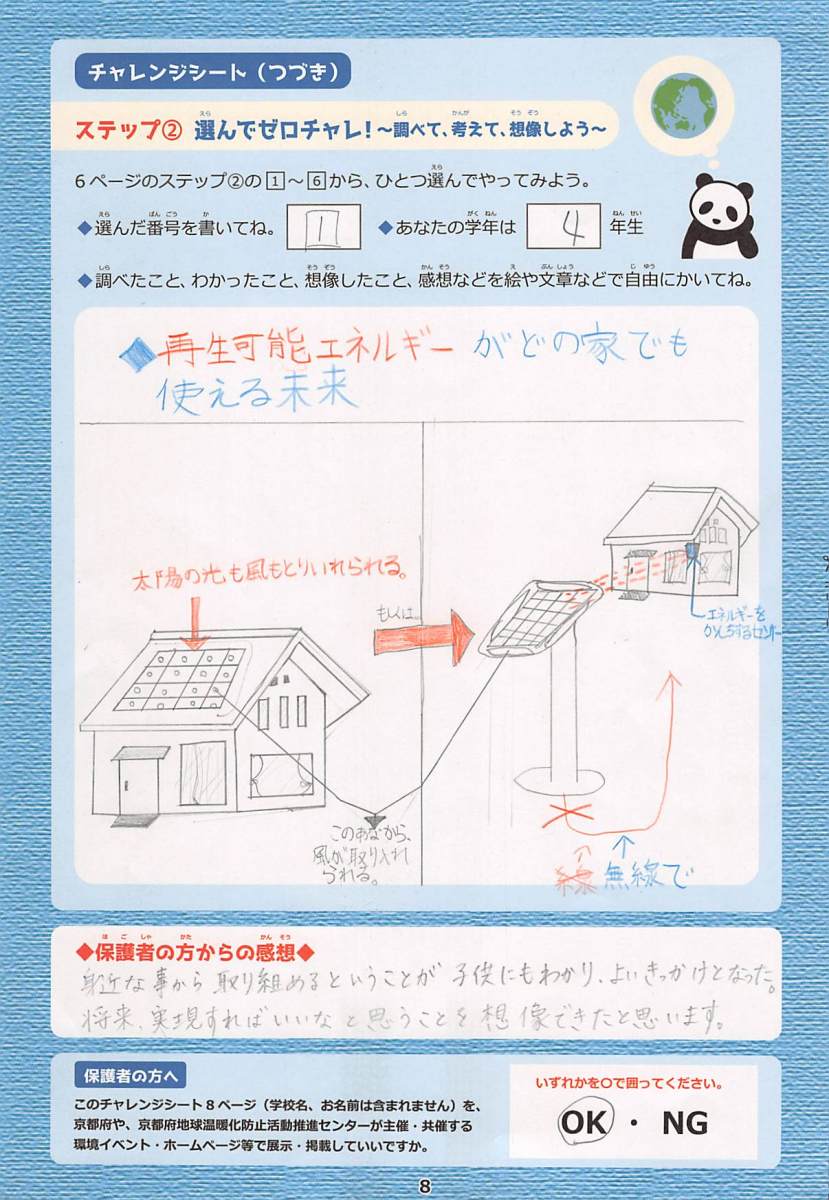 チャレンジシート（つづき）
ステップ② 選んでゼロチャレ！～調べて、考えて、想像しよう～
6ページのステップ②の1～6から、ひとつ選んでやってみよう。
◆選んだ番号を書いてね。 1 ◆あなたの学年は 4 年生
◆調べたこと、わかったこと、想像したこと、感想などを絵や文章などで自由にかいてね。
◆再生可能エネルギーがどの家でも
使える未来
太陽の光も風もとりいれられる。
もしくは…
エネルギーを
かんちするセンサー
このあなから、
風が取り入れ
られる。
線 無線で
◆保護者の方からの感想◆
身近な事から取り組めるということが子供にもわかり、よいきっかけとなった。
将来、実現すればいいなと思うことを想像できたと思います。
保護者の方へ
いずれかを〇で囲ってください。
このチャレンジシート8ページ（学校名、お名前は含まれません）を、
京都府や、京都府地球温暖化防止活動推進センターが主催・共催する
環境イベント・ホームページ等で展示・掲載していいですか。
OK ・ NG
8